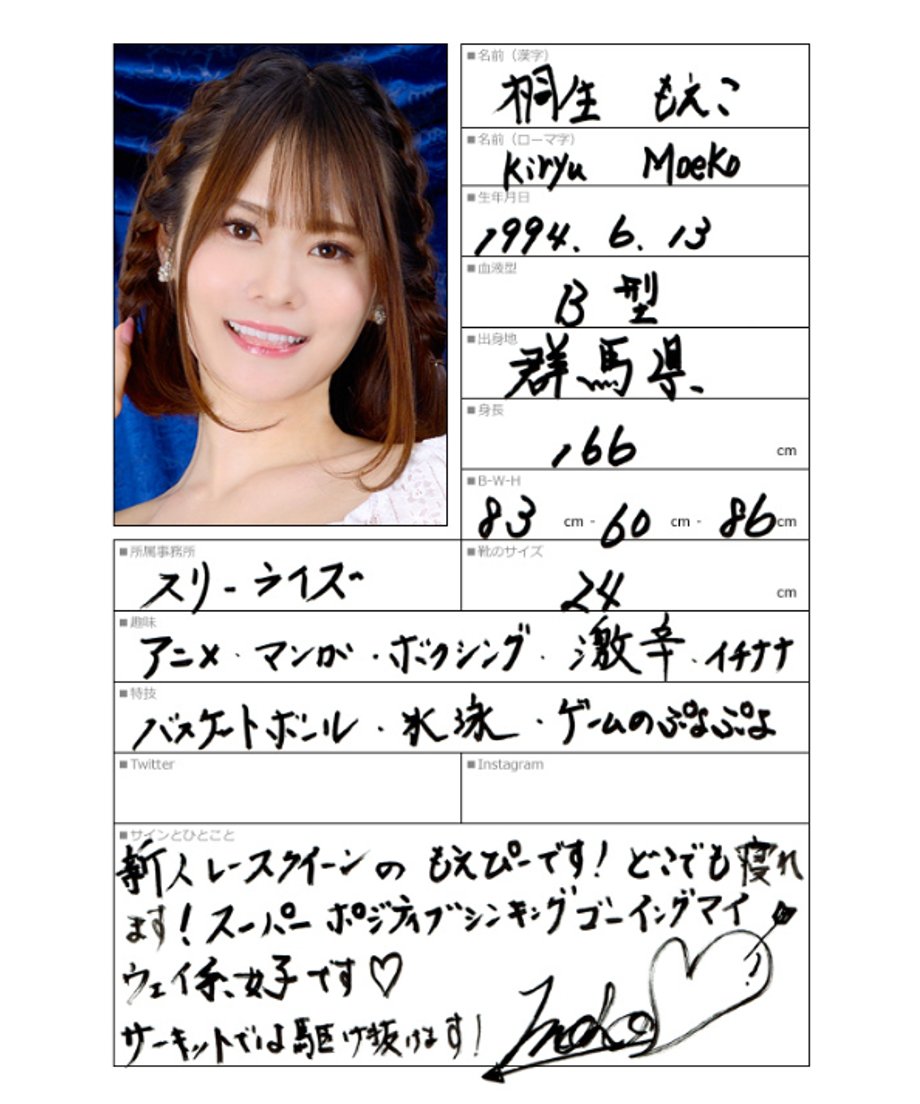 ■名前（漢字）
桐生 もえこ
■名前（ローマ字）
Kiryu Moeko
■生年月日
1994. 6. 13
■血液型
B型
■出身地
群馬県
■身長
166 cm
■B-W-H
83 cm - 60 cm - 86 cm
■所属事務所
スリーライズ
■靴のサイズ
24 cm
■趣味
アニメ・マンガ・ボクシング・激辛・イチナナ
■特技
バスケットボール・水泳・ゲームのぷよぷよ
■Twitter
■Instagram
■サインとひとこと
新人レースクイーンの もえぴーです！どこでも寝れ
ます！スーパーポジティブシンキングゴーイングマイ
ウェイ系女子です♡
サーキットでは駆け抜けます！